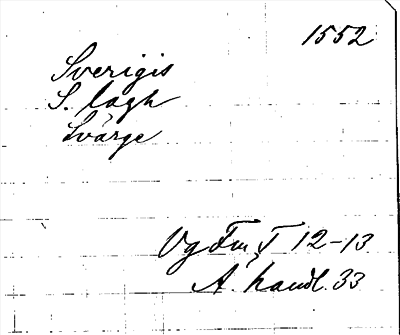 1552
Sverigis
S. lagh
Svärge
Vg Fm T 12-13
Ä. handl. 33